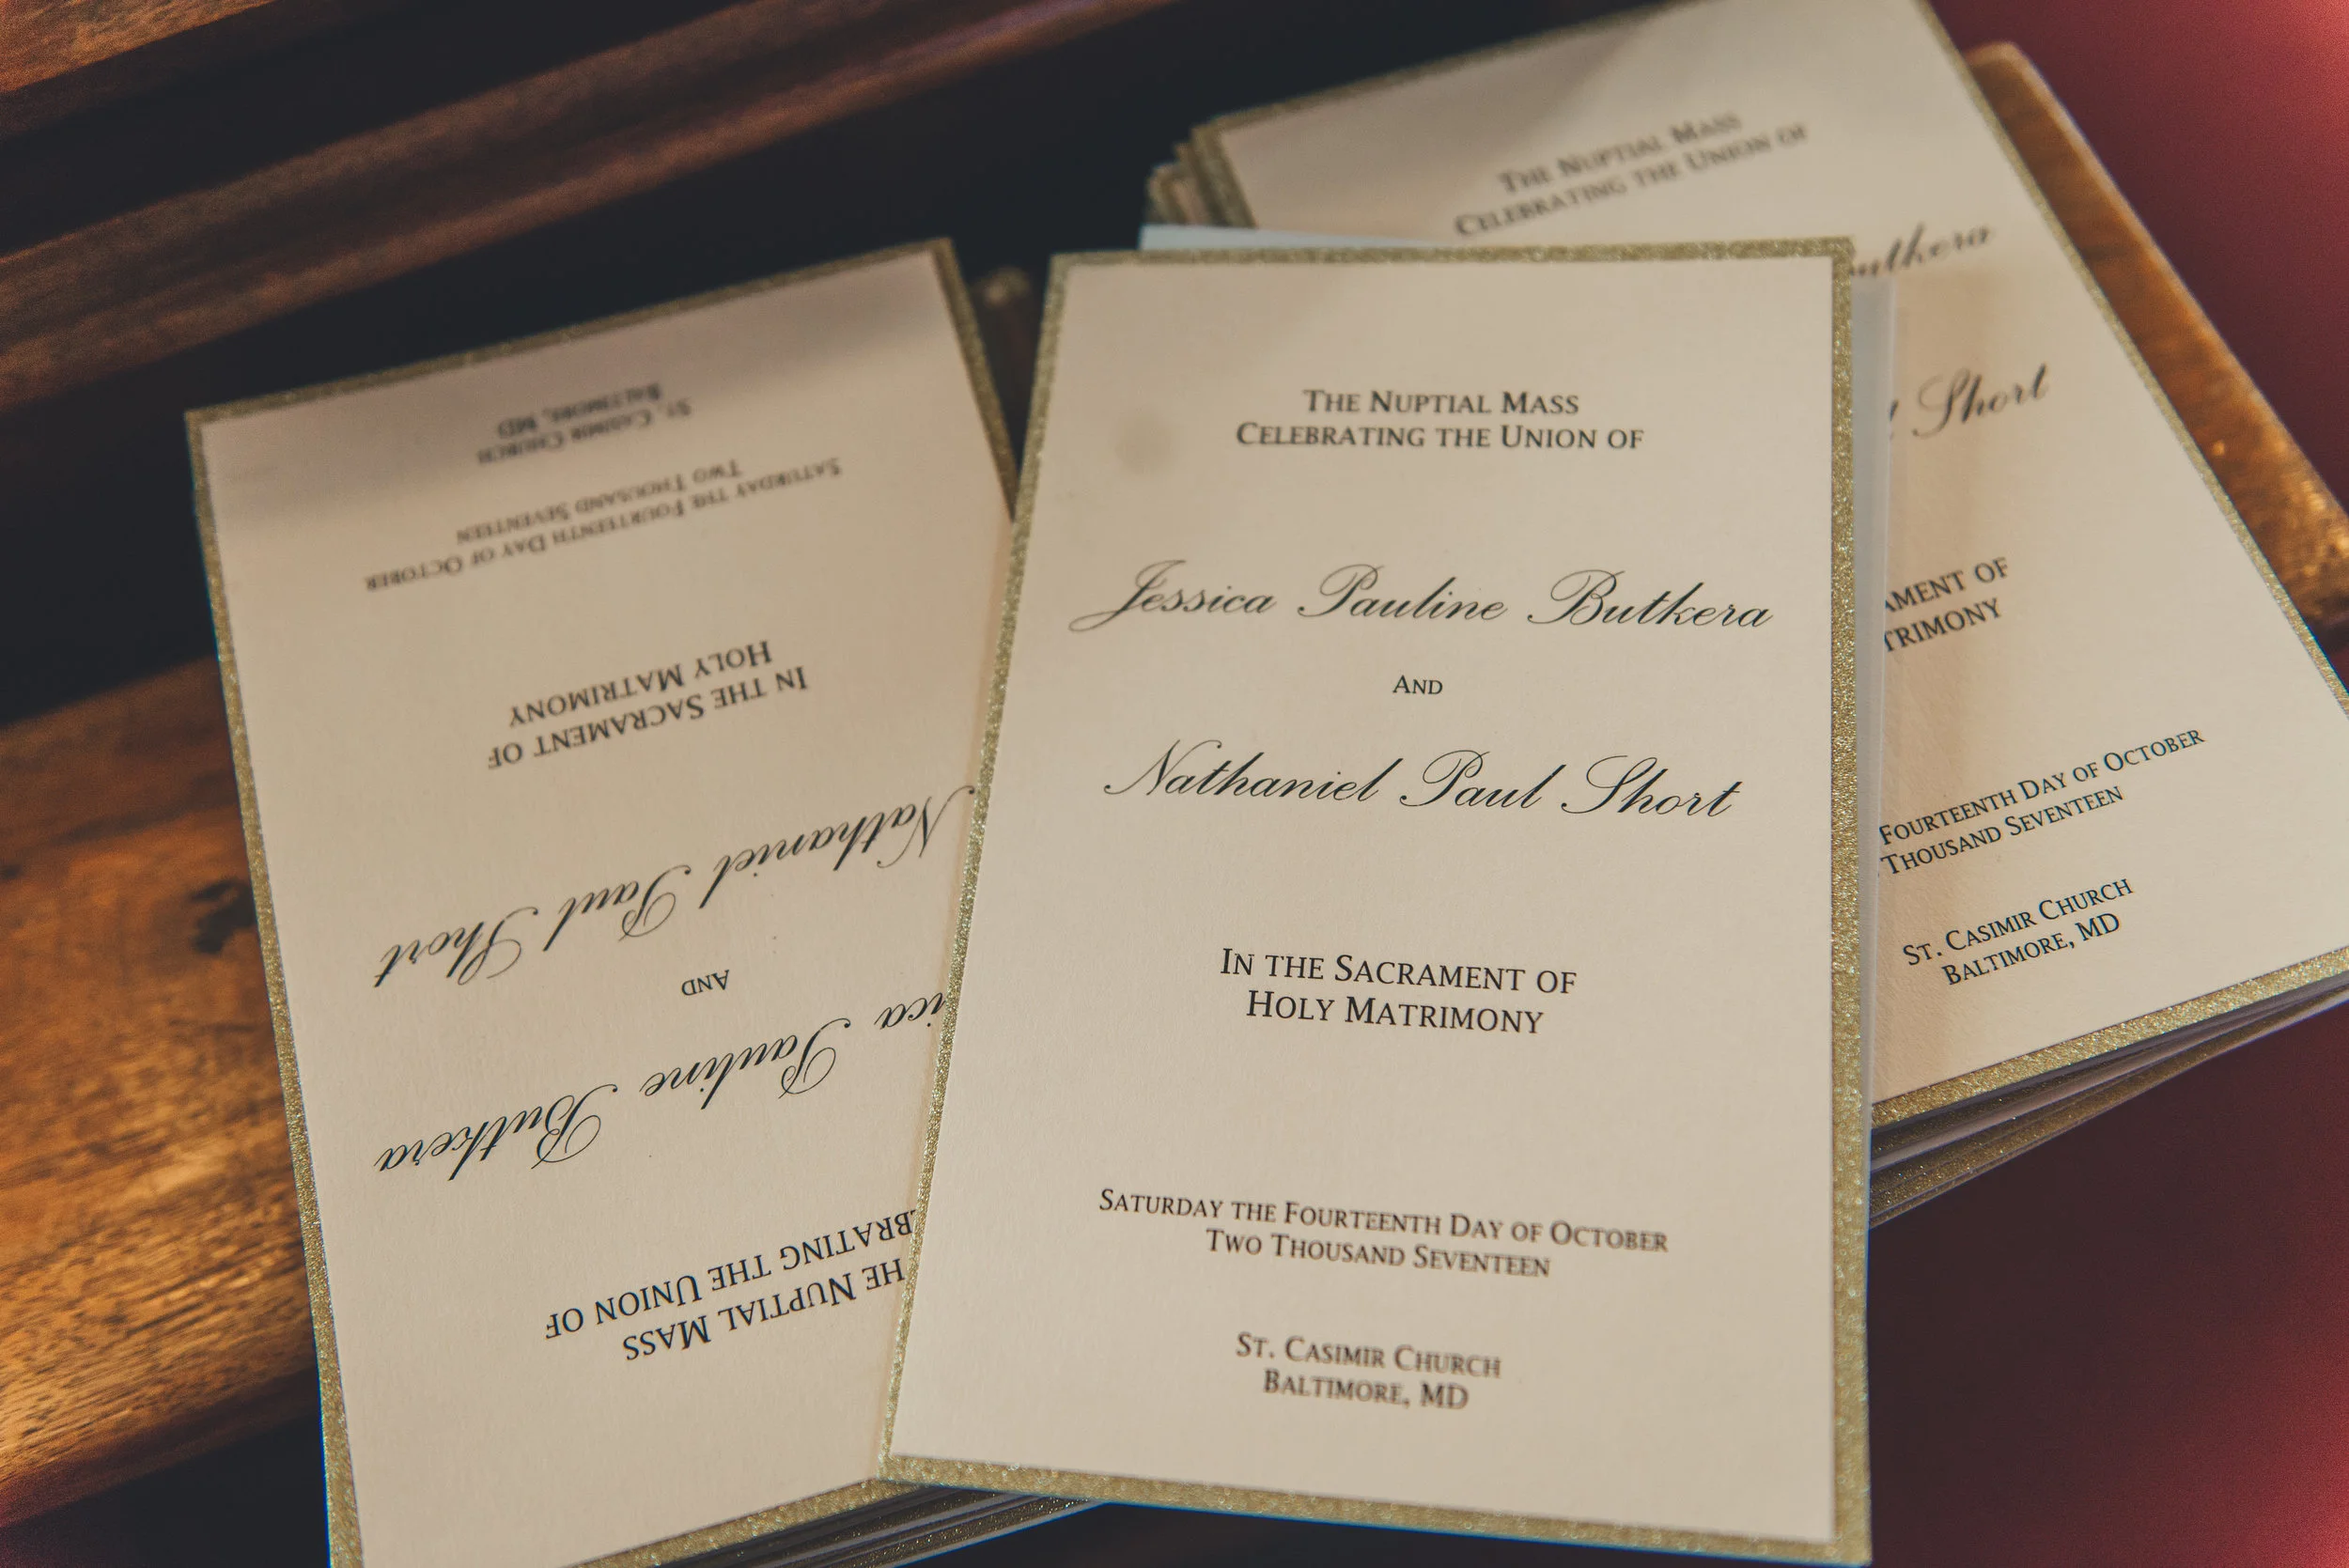 The Nuptial Mass
Celebrating the Union of
Jessica Pauline Butkera
And
Nathaniel Paul Short
In the Sacrament of
Holy Matrimony
Saturday the Fourteenth Day of October
Two Thousand Seventeen
St. Casimir Church
Baltimore, MD
he Nuptial Mass
ebrating the Union of
ica Pauline Butkera
And
Nathaniel Paul Short
In the Sacrament of
Holy Matrimony
Saturday the Fourteenth Day of October
Two Thousand Seventeen
St. Casimir Church
Baltimore, MD
The Nuptial Mass
Celebrating the Union of
utkera
l Short
ament of
trimony
Fourteenth Day of October
Thousand Seventeen
St. Casimir Church
Baltimore, MD